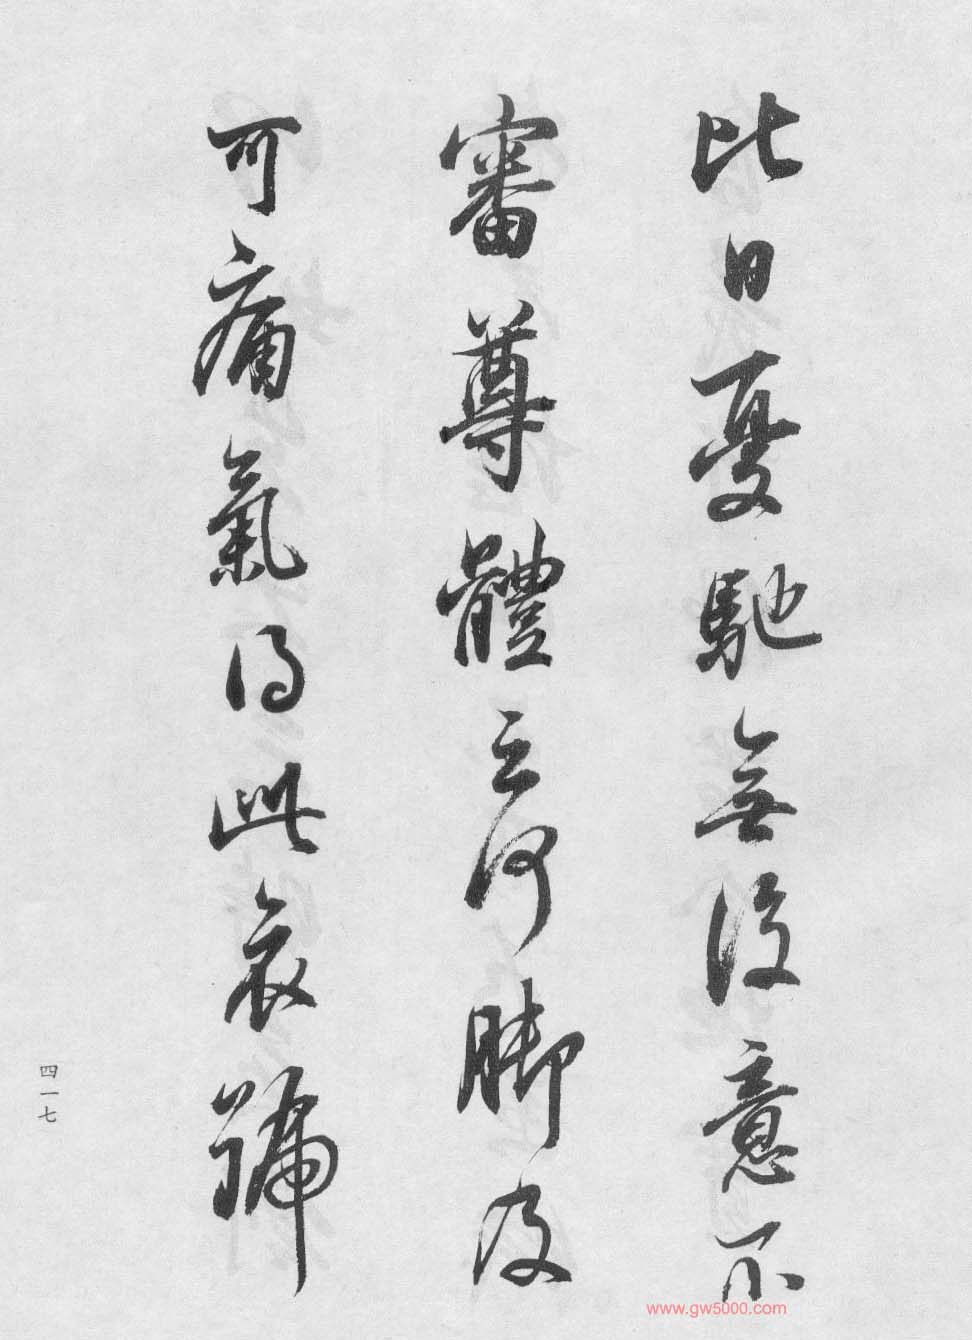 比日憂馳無復意不
審尊體云何腳及
可痛氣得此哀號
四一七
www.gw5000.com